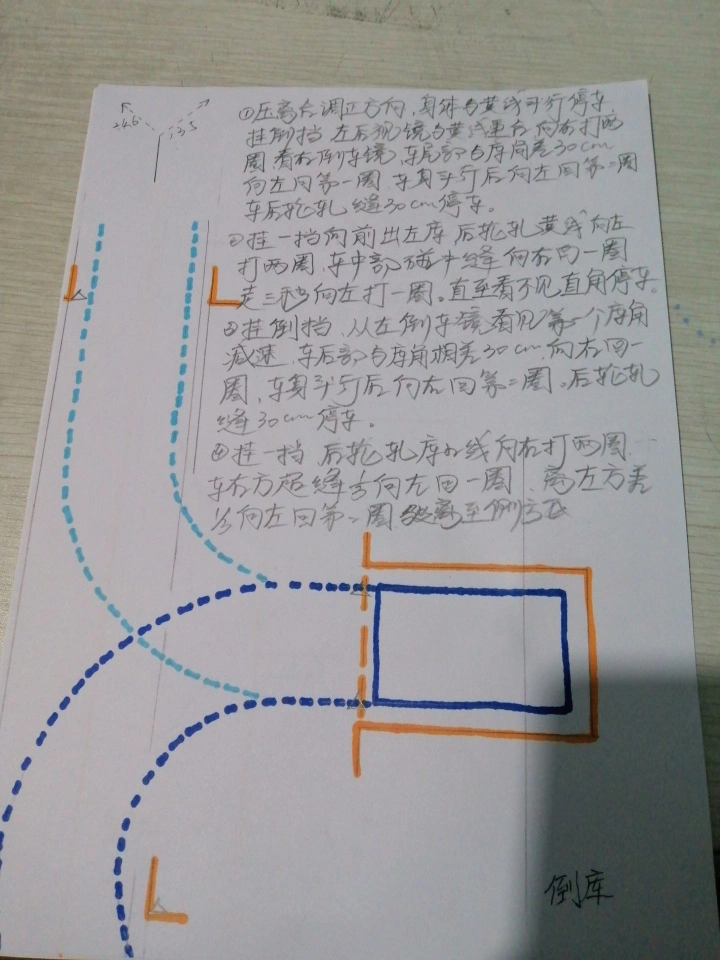 246
135
①压离台调正方向,身体与黄线平行停车,
挂倒挡 左后视镜与黄线重合 向右打两
圈,看右倒车镜,车尾部与库角差30cm
向左回第一圈,车身平行后向左回第二圈
车后轮轧缝30cm停车。
②挂一挡向前出左库 后轮轧黄线向左
打两圈,车中部碰中缝向右回一圈
走三秒向左打一圈。直至看不见直角停车。
③挂倒挡,从左倒车镜看见第一个库角
减速,车后部与库角相差30cm,向右回一
圈,车身平行后向右回第二圈。后轮轧
缝30cm停车。
④挂一挡 后轮轧库外线向右打两圈
车右方距缝⅓向左回一圈,离左方差
⅓向左回第二圈
倒库